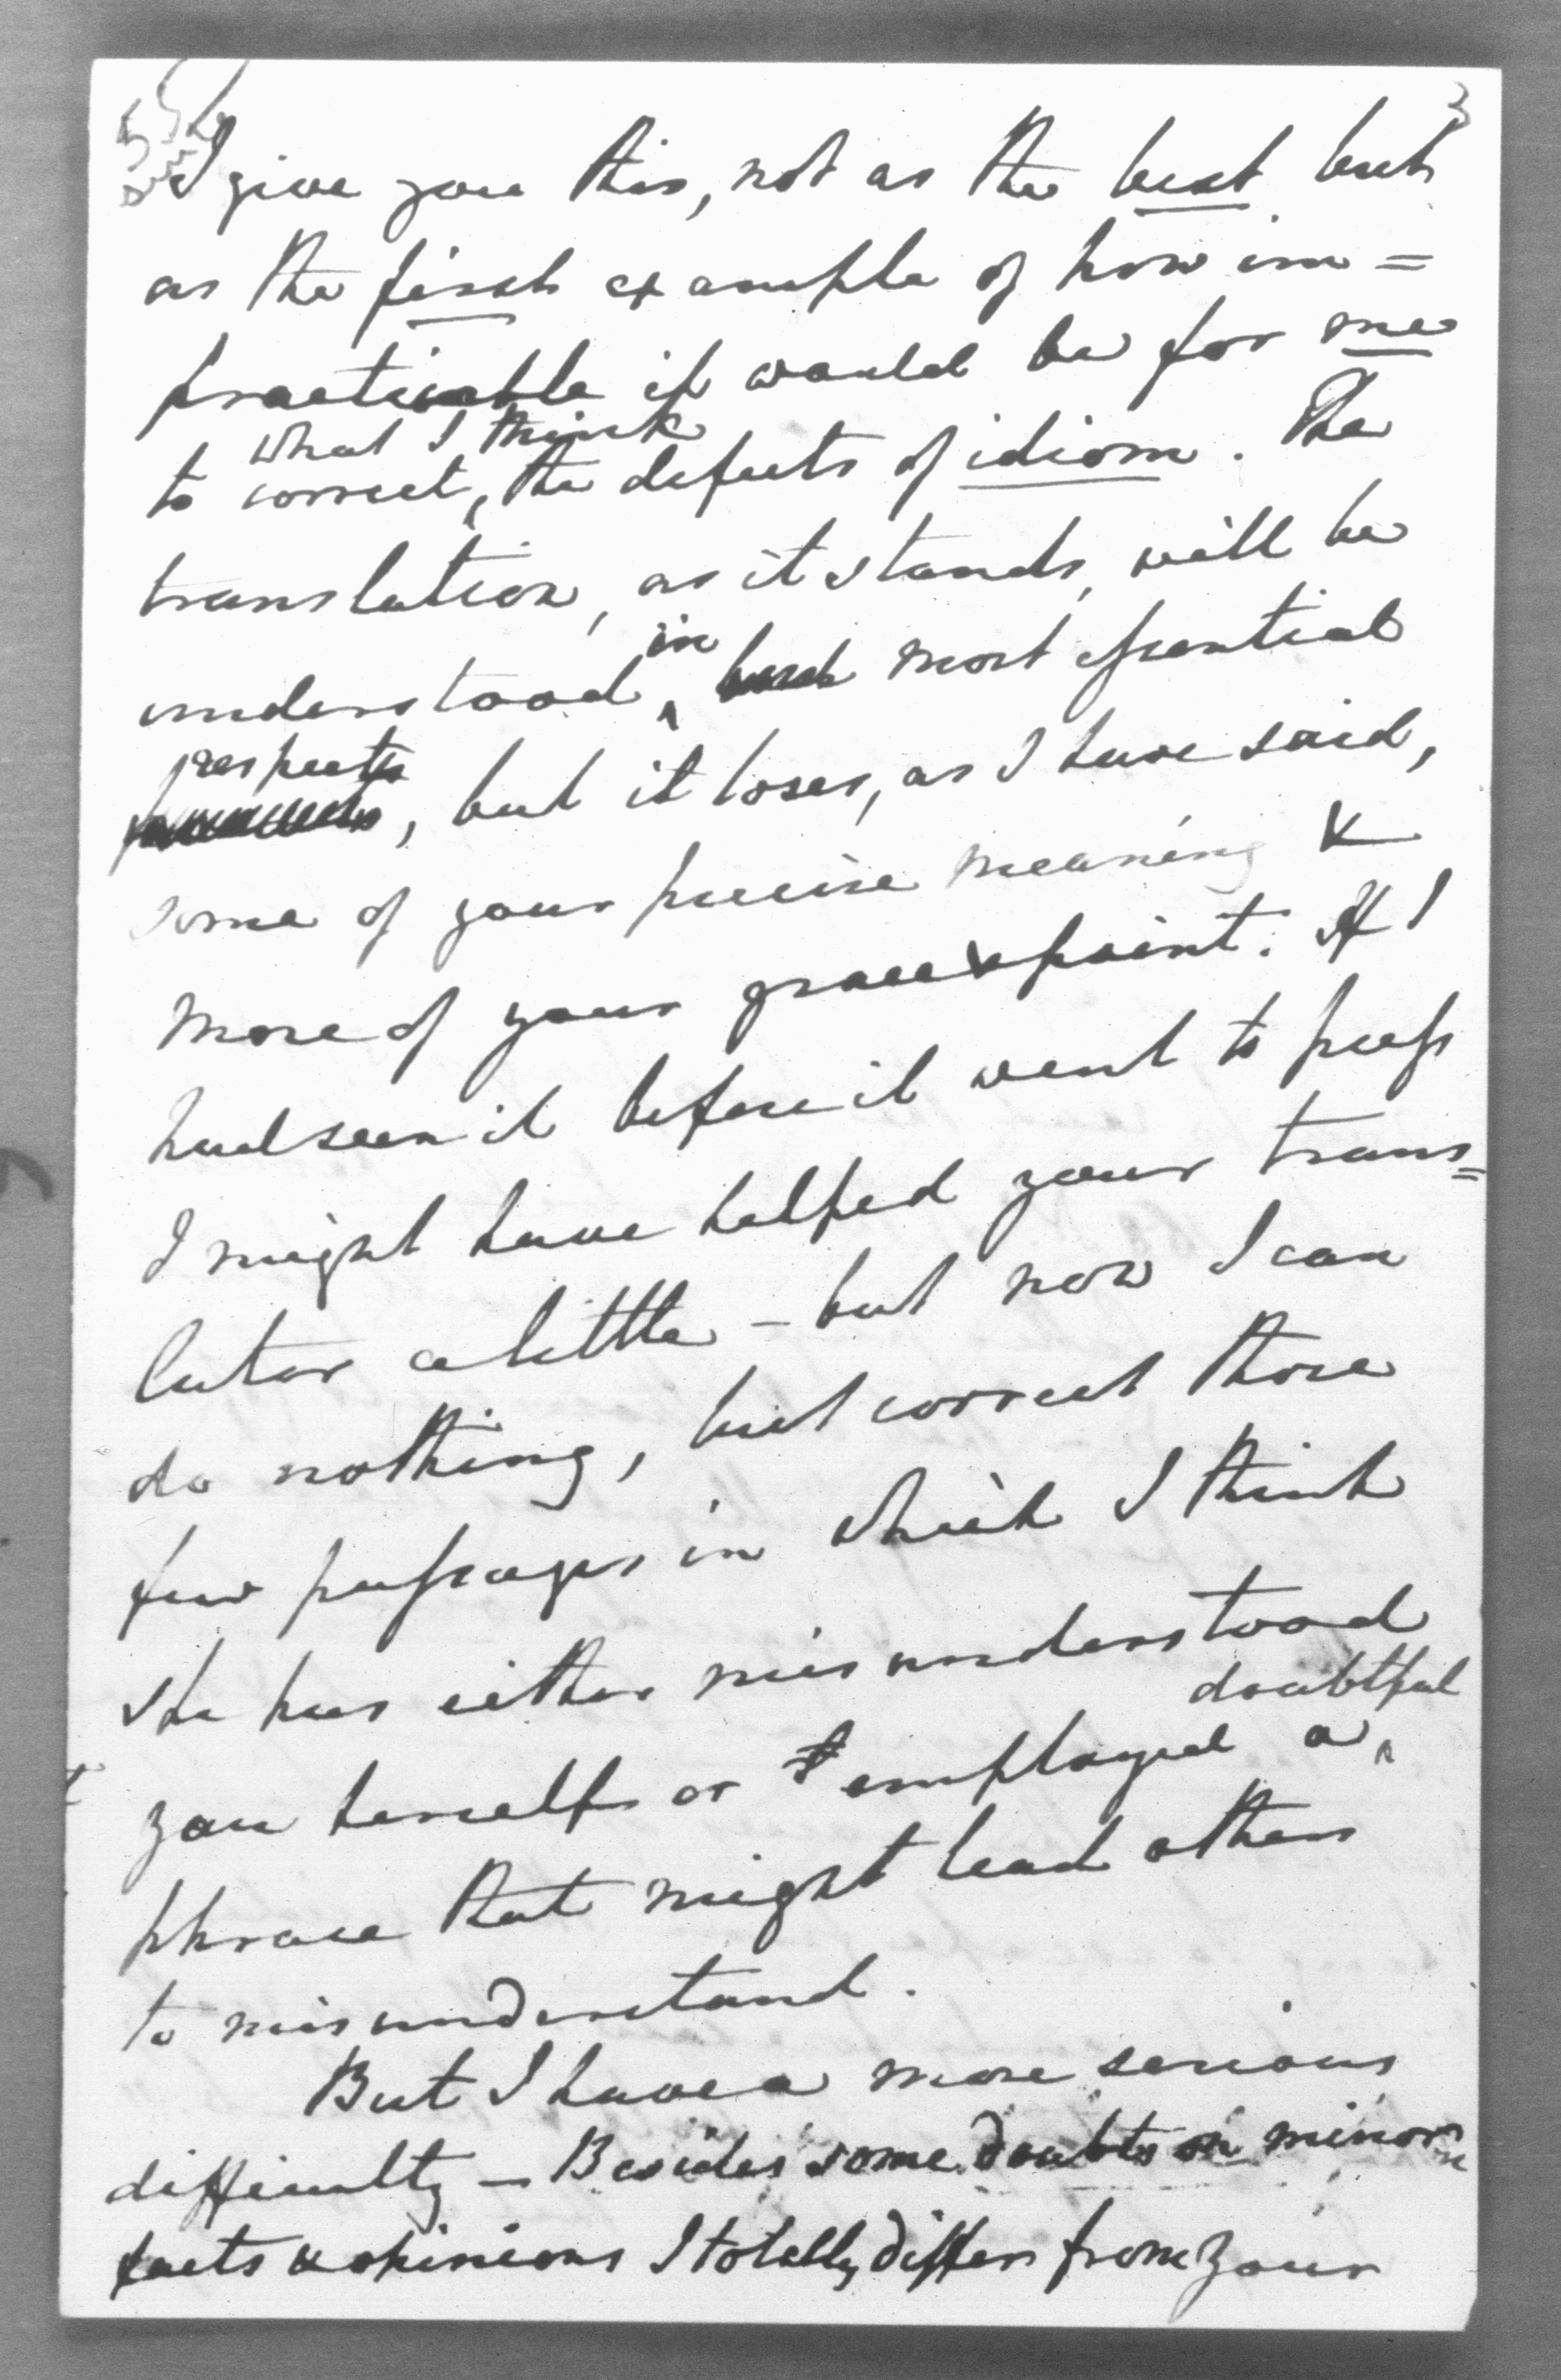 3
I give you this, not as the best but
as the first example of how im=
practicable it would be for me
what I think
to correct, the defects of idiom. The
translation, as it stands, will be
in
understood, most essential
respects
, but it loses, as I have said,
some of your precise meaning &
more of your grace & point. If I
had seen it before it went to press
I might have helped your trans=
lator a little – but now I can
do nothing, but correct those
few passages in which I think
she has either misunderstood
doubtful
you herself or employed a
phrase that might lead others
to misunderstand.
But I have a more serious
difficulty – Besides some doubts on minor
facts & opinions I totally differ from your